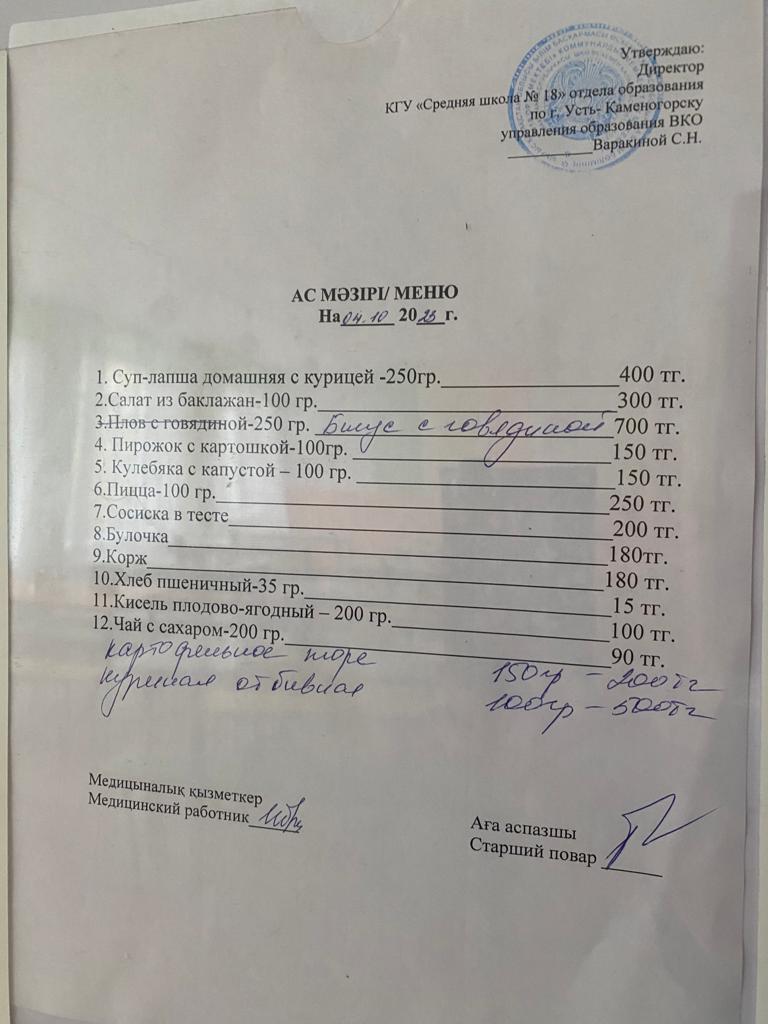 Утверждаю:
Директор
КГУ «Средняя школа № 18» отдела образования
по г. Усть- Каменогорску
управления образования ВКО
____________Варакиной С.Н.
АС МӘЗІРІ/ МЕНЮ
На 04.10 2023 г.
1. Суп-лапша домашняя с курицей -250гр.____400 тг.
2.Салат из баклажан-100 гр.____300 тг.
3.Плов с говядиной-250 гр. Бигус с говядиной 700 тг.
4. Пирожок с картошкой-100гр.____150 тг.
5. Кулебяка с капустой – 100 гр.____150 тг.
6.Пицца-100 гр.____250 тг.
7.Сосиска в тесте____200 тг.
8.Булочка____180тг.
9.Корж____180 тг.
10.Хлеб пшеничный-35 гр.____15 тг.
11.Кисель плодово-ягодный – 200 гр.____100 тг.
12.Чай с сахаром-200 гр.____90 тг.
картофельное пюре 150гр – 200тг
куриная отбивная 100гр – 500тг
Медицыналық қызметкер
Медицинский работник______
Аға аспазшы
Старший повар ______